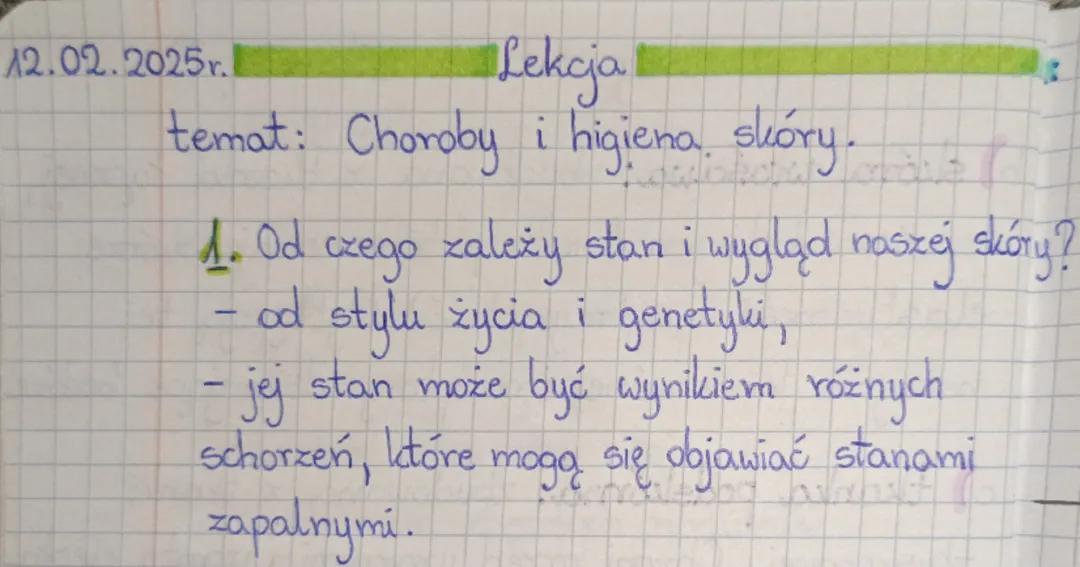 12.02.2025r. Lekcja
temat: Choroby i higiena skóry.
1. Od czego zależy stan i wygląd naszej skóry?
- od stylu życia i genetyki,
- jej stan może być wynikiem różnych
schorzeń, które mogą się objawiać stanami
zapalnymi.